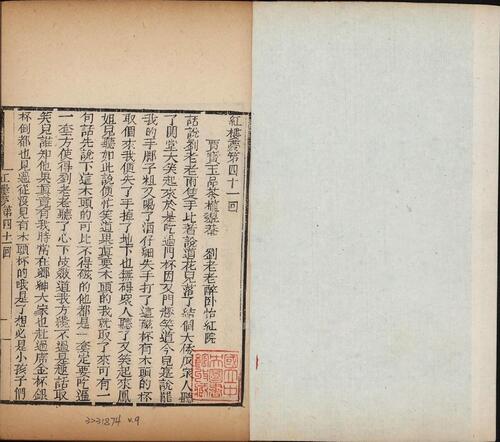 紅樓夢第四十一回
賈寶玉品茶櫳翠菴　劉老老醉臥怡紅院
話說劉老老兩隻手比著說道花兒落了結個大倭瓜衆人聽
了閧堂大笑起來於是吃過門杯因又鬥趣笑道今兒實說罷
我的手腳子粗又喝了酒仔細失手打了這磁杯有木頭的杯
取個來我便失了手掉了地下也無碍衆人聽了又笑起來鳳
姐兒聽如此說便忙笑道果眞要木頭的我就取了來可有一
句話先說下這木頭的可比不得磁的他都是一套定要吃遍
一套方使得劉老老聽了心下敁敠道我方纔不過是趣話取
笑兒誰知他果眞竟有我時常在鄉紳大家也赴過席金杯銀
杯倒都也見過從沒見有木頭杯的哦是了想必是小孩子們
紅樓夢　第四十一回
3231874 v.9